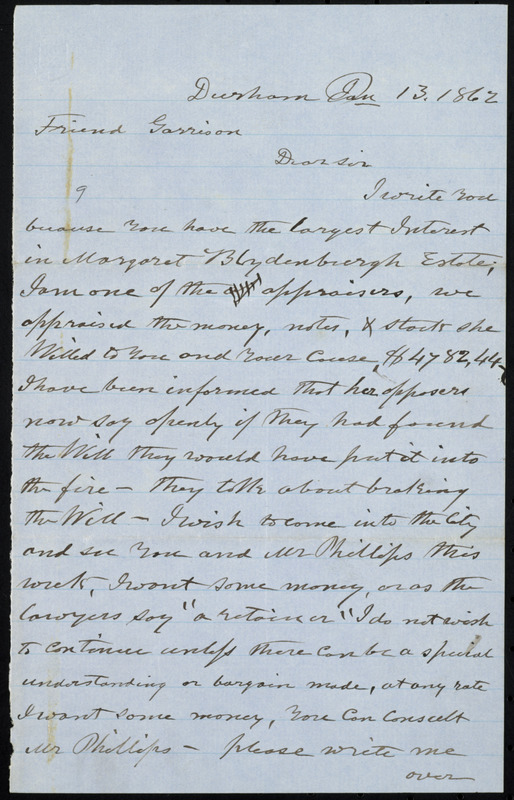 Durham Jan 13. 1862
Friend Garrison
Dear sir
9 I write you
because you have the largest Interest
in Margaret Blydenburgh Estate;
I am one of the appraisers, we
appraised the money, notes, & stock she
Willed to You and Your Cause, $4782,44
I have been informed that her opposers
now say openly if they had found
the Will they would have put it into
the fire - they talk about breaking
the Will - I wish to come into the City
and see You and Mr Phillips this
week, I want some money, or as the
lawyers say "a retainer" I do not wish
to continue unless there can be a special
understanding or bargain made, at any rate
I want some money, You Can Consult
Mr Phillips - please write me
over